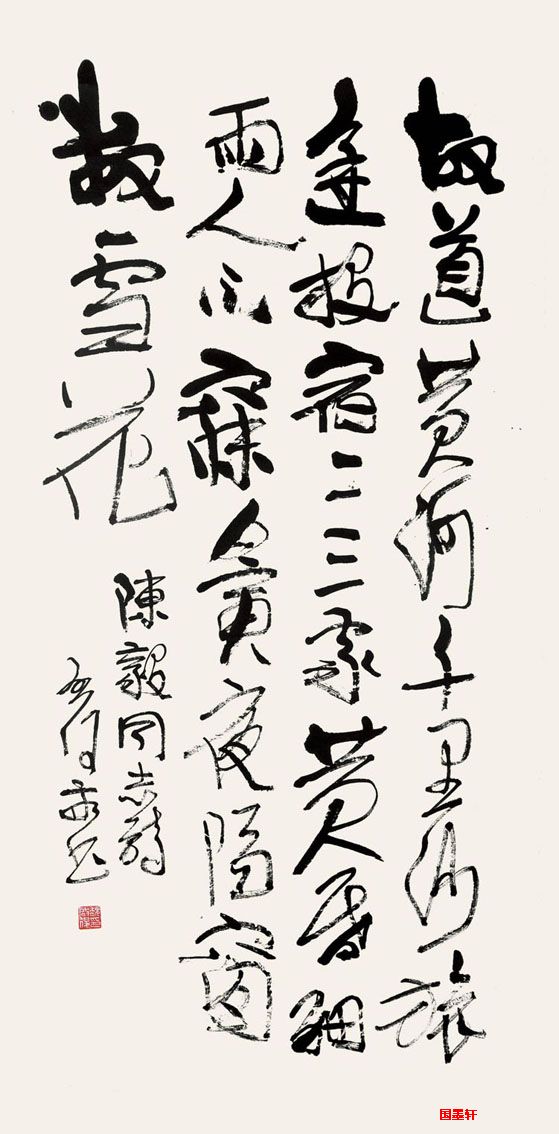 故道黄河千里沙旅
途投宿二三家黄昏細
雨人不寐夤夜隔窗
數雪花
陳毅同志詩
国墨轩